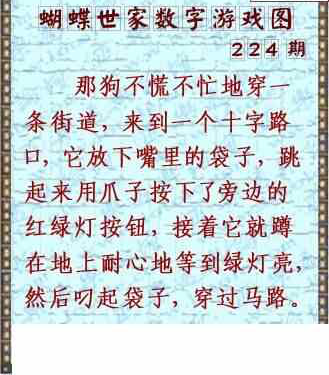 蝴蝶世家数字游戏图
224期
那狗不慌不忙地穿一
条街道，来到一个十字路
口，它放下嘴里的袋子，跳
起来用爪子按下了旁边的
红绿灯按钮，接着它就蹲
在地上耐心地等到绿灯亮，
然后叼起袋子，穿过马路。